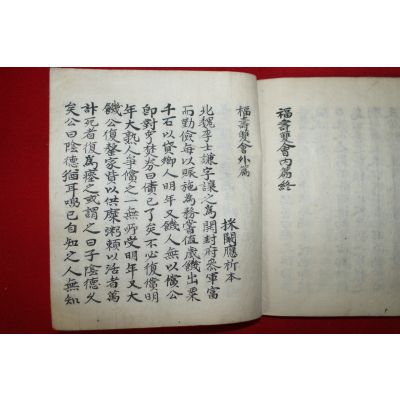 福壽雙會內篇終
福壽雙會外篇
採闡應祈本
北魏李士謙字讓之爲開封府參軍富
而勤儉每以賑施爲務嘗值歲饑出粟
千石以貸鄉人明年又饑人無以償公
卽對衆焚券曰債已了矣不必復償明
年大熟人爭償之一無所受明年又大
饑公復罄家皆以供糜粥賴以活者萬
計死者復爲瘞之或謂之曰子陰德大
矣公曰陰德猶耳鳴已自知之人無知